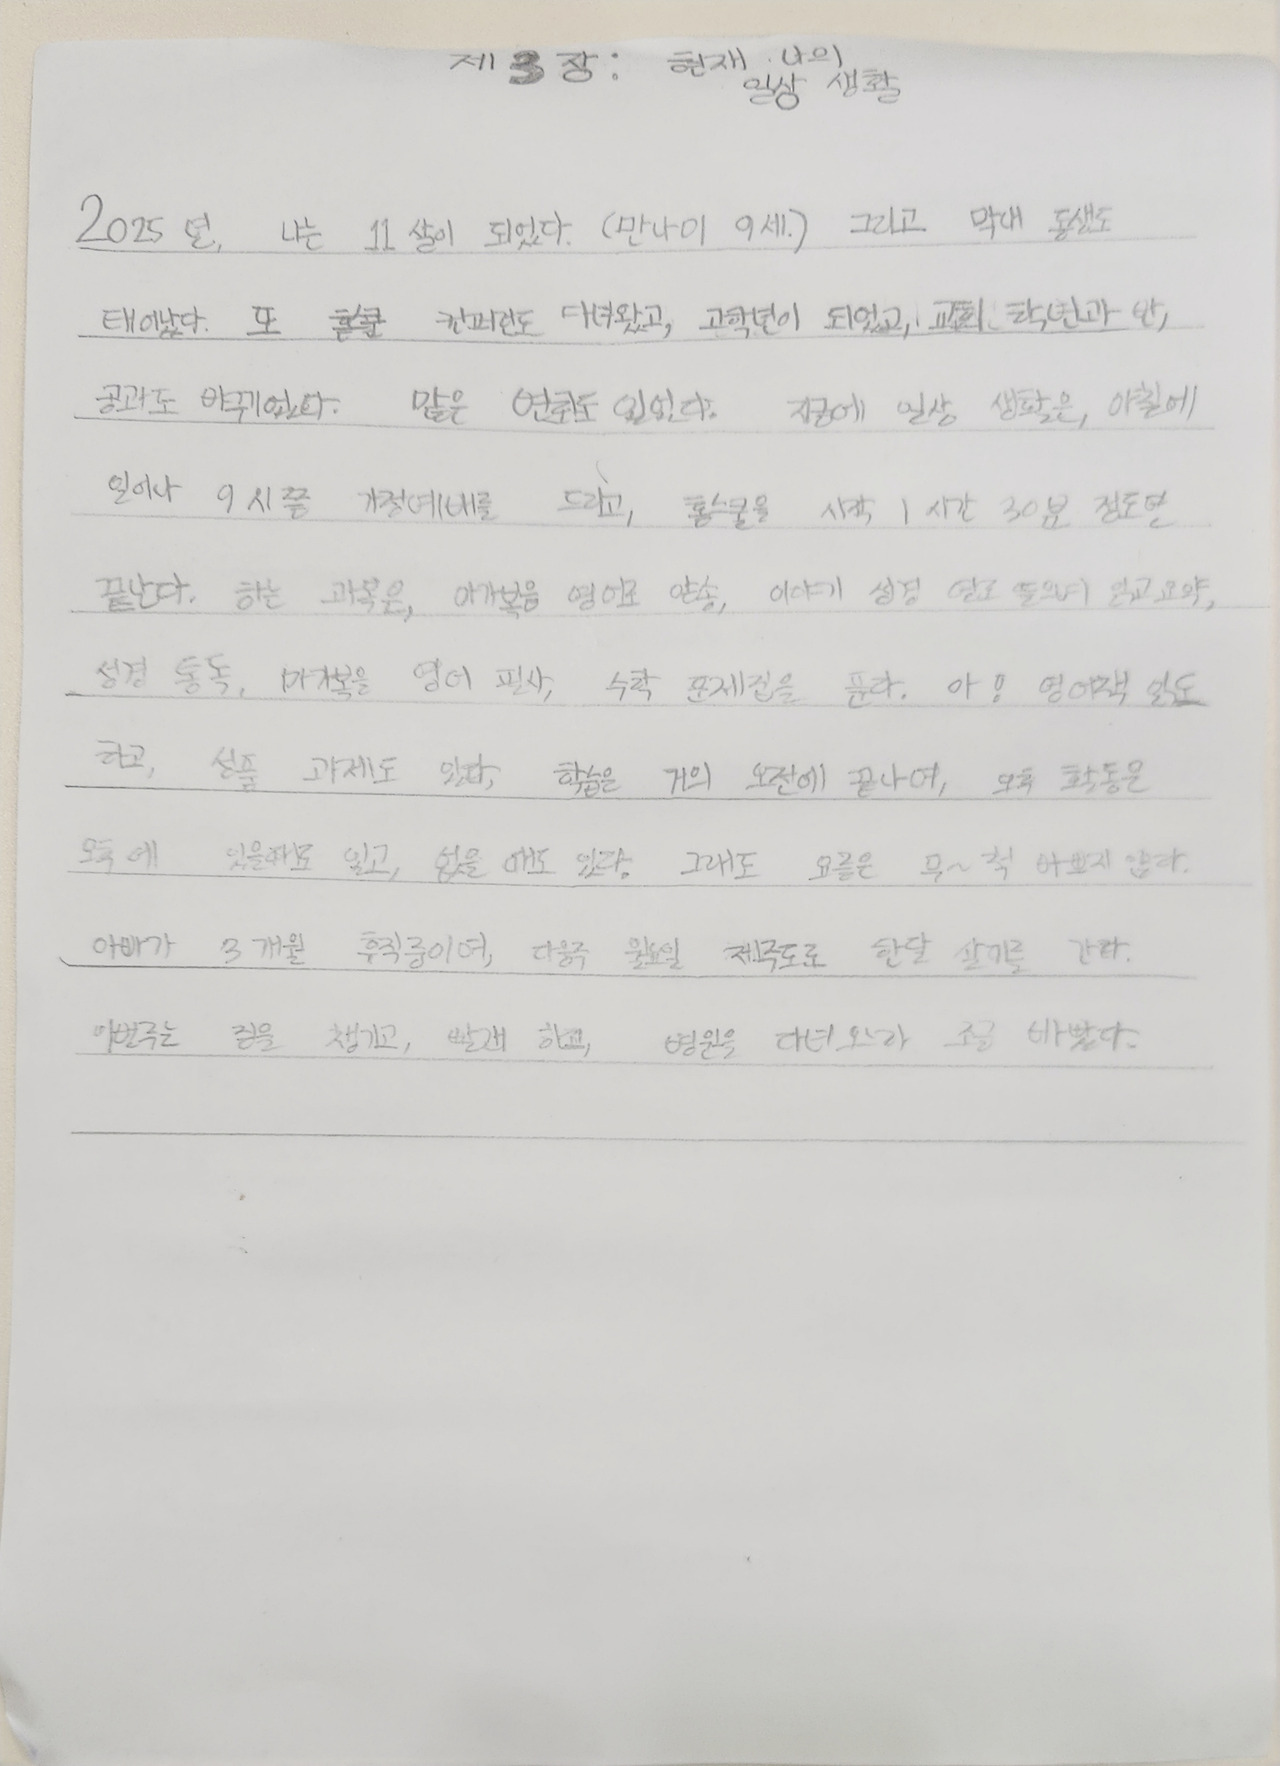 제 3 장: 현재 나의
일상 생활
2025 년, 나는 11 살이 되었다. (만나이 9세.) 그리고 막내 동생도
태어났다. 또 홈스쿨 컨퍼런도 다녀왔고, 고학년이 되었고, 교회 학년과 반,
공과도 바뀌었다. 많은 변화도 있었다. 지금에 일상 생활은, 아침에
일어나 9시쯤 가정예배를 드리고, 홈스쿨을 시작 1시간 30분 정도면
끝난다. 하는 과목은, 마가복음 영어로 암송, 이야기 성경 읽고요약,
성경 통독, 마가복음 영어 필사, 수학 문제집을 푼다. 아! 영어책 읽도
하고, 성품 과제도 있다, 학습은 거의 오전에 끝나며, 오후 활동은
오후에 있을때도 있고, 없을 때도 있다. 그래도 요즘은 무~척 바쁘지 않다.
아빠가 3개월 휴직중이며, 다음주 월요일 제주도로 한달 살기를 간다.
이번주는 짐을 챙기고, 빨래 하고, 병원을 다녀오나라 조금 바빴다.